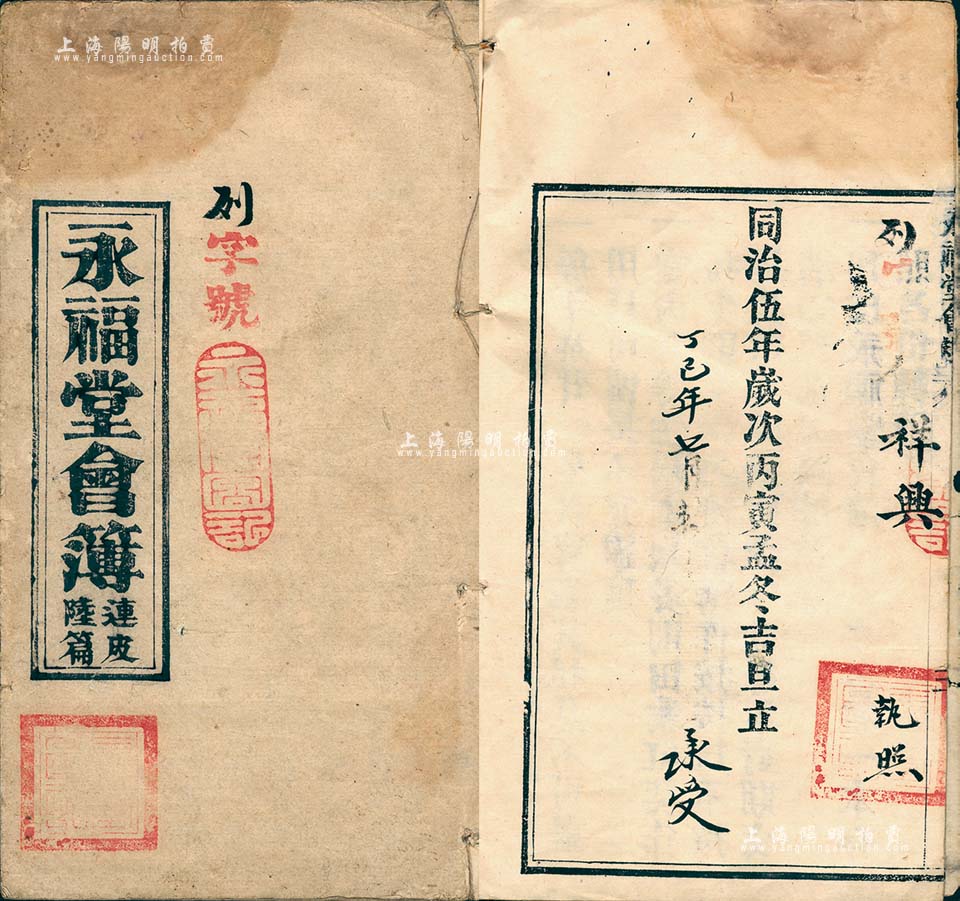 上海陽明拍賣
www.yangmingauction.com
列字號
永福堂會簿
連皮
陸篇
列
祥興
執照
同治伍年歲次丙寅孟冬吉旦立
丁巳年七月
承受
上海陽明拍賣
www.yangmingauction.com
上海陽明拍賣
www.yangmingauction.com
上海陽明拍賣
www.yangmingauction.com